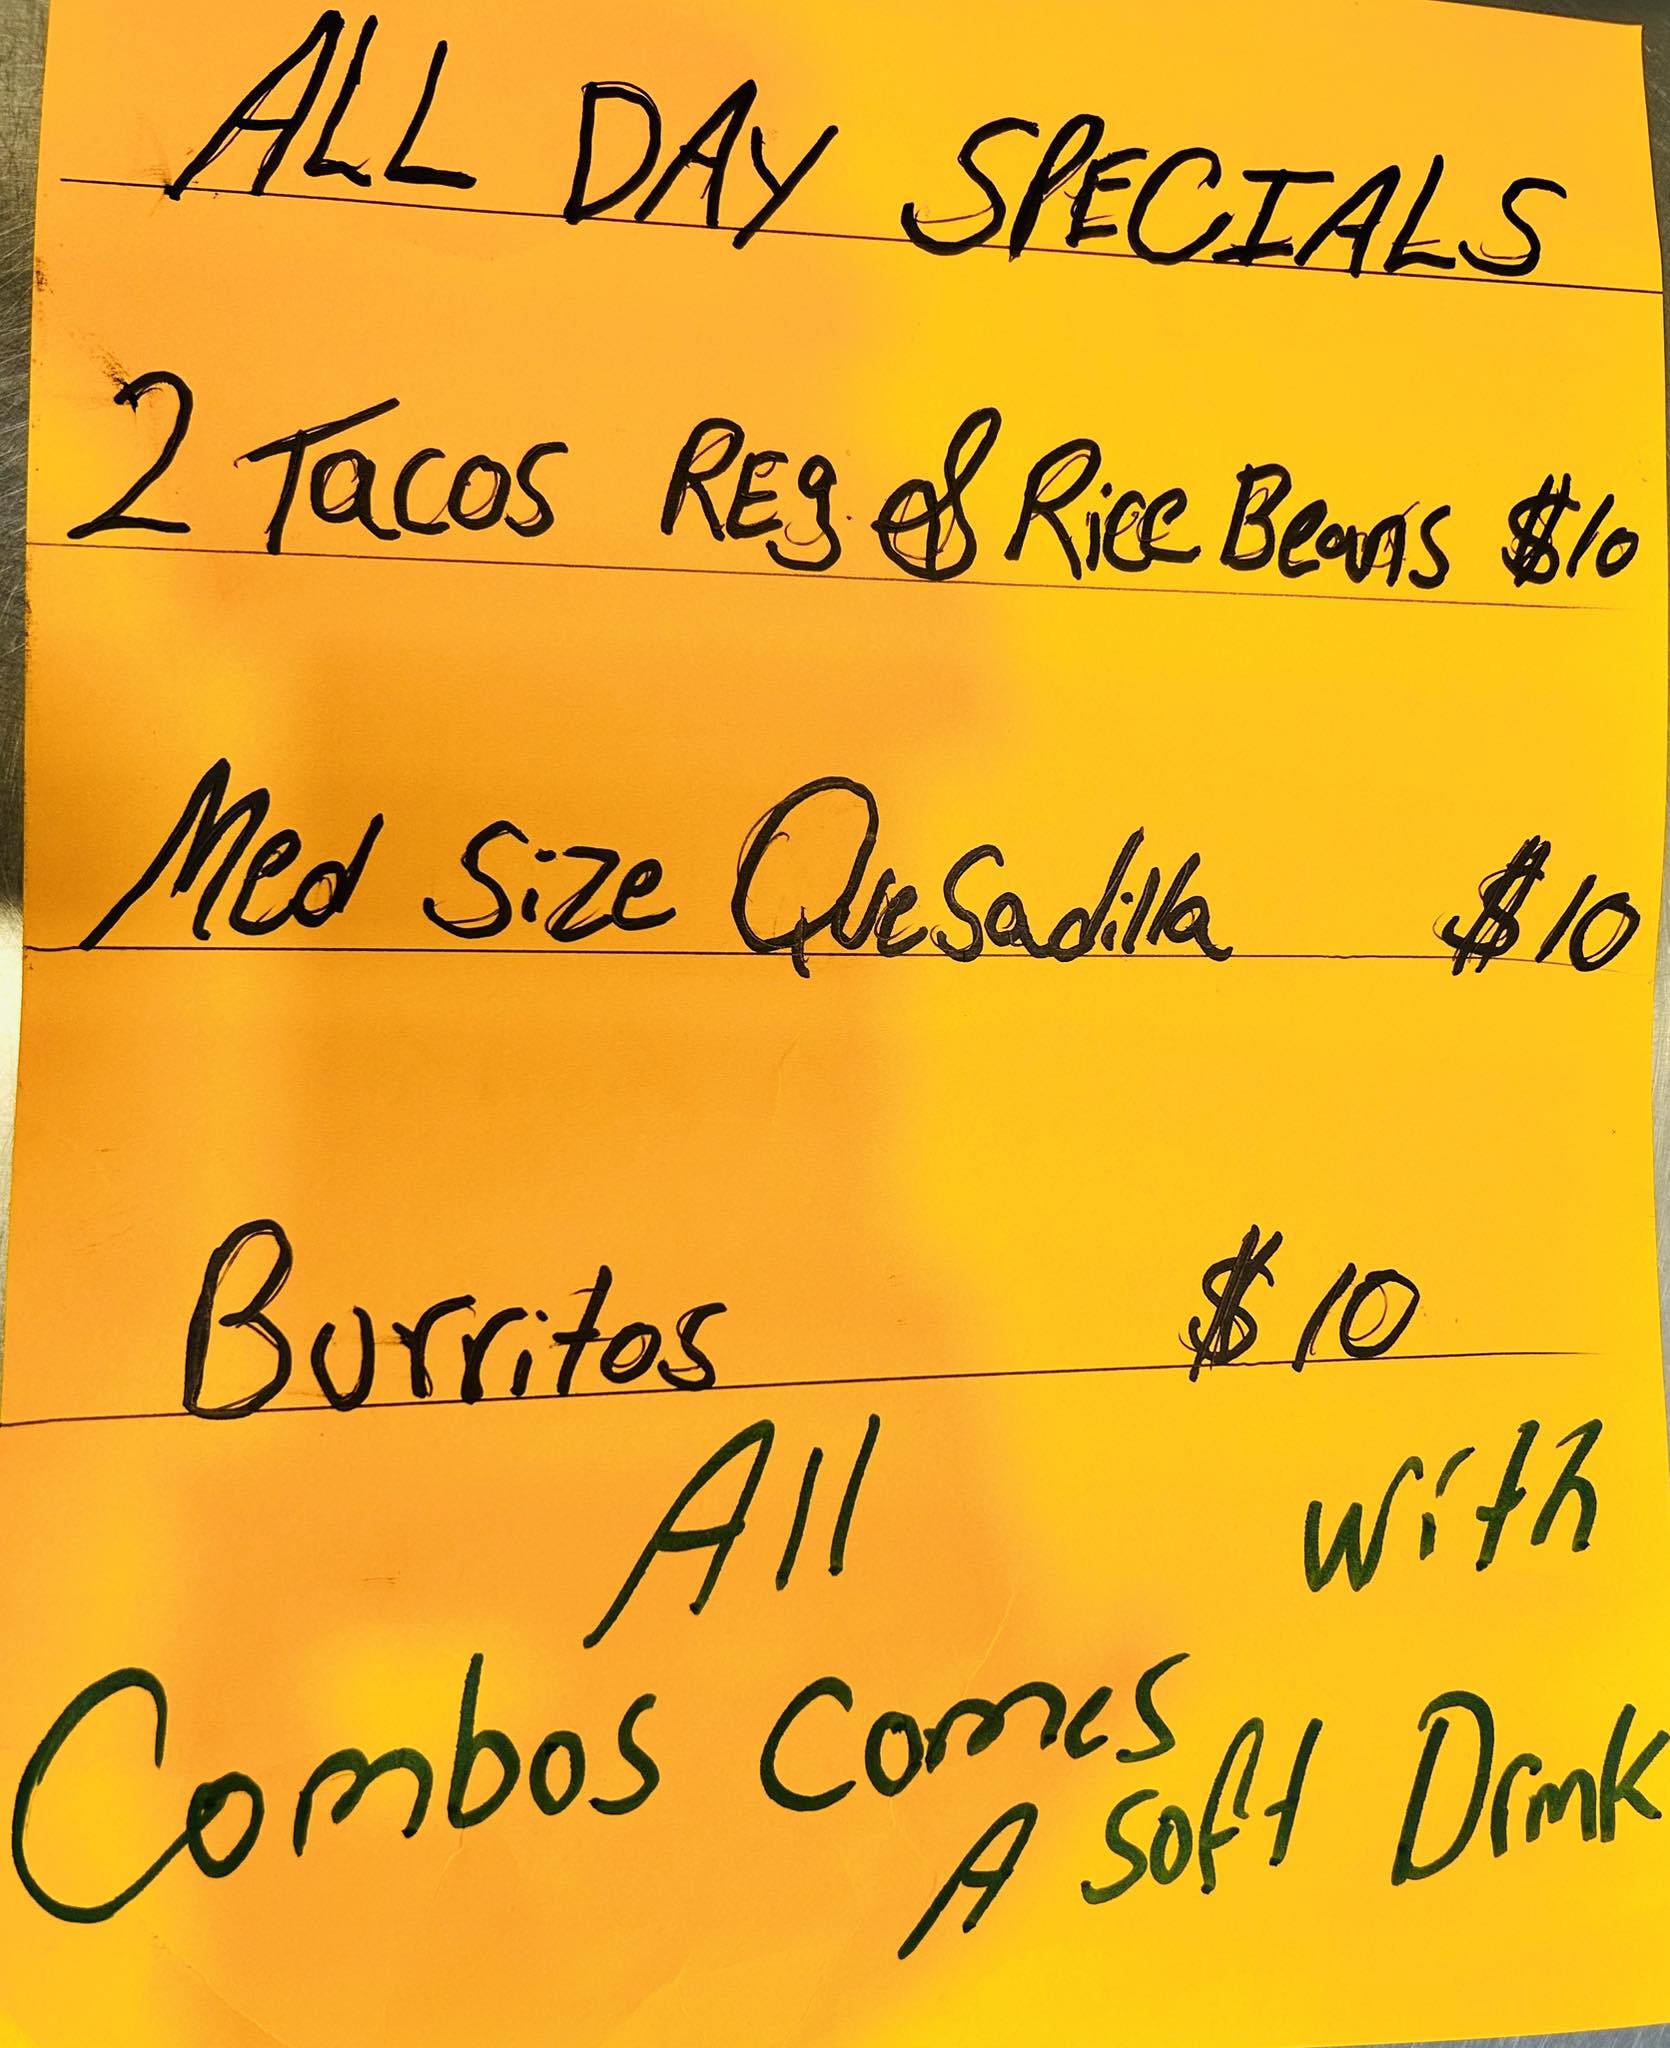 ALL DAY SPECIALS
2 Tacos REg. of Rice Beans $10
Med Size Quesadilla $10
Burritos $10
All with
Combos Comes
A Soft Drink